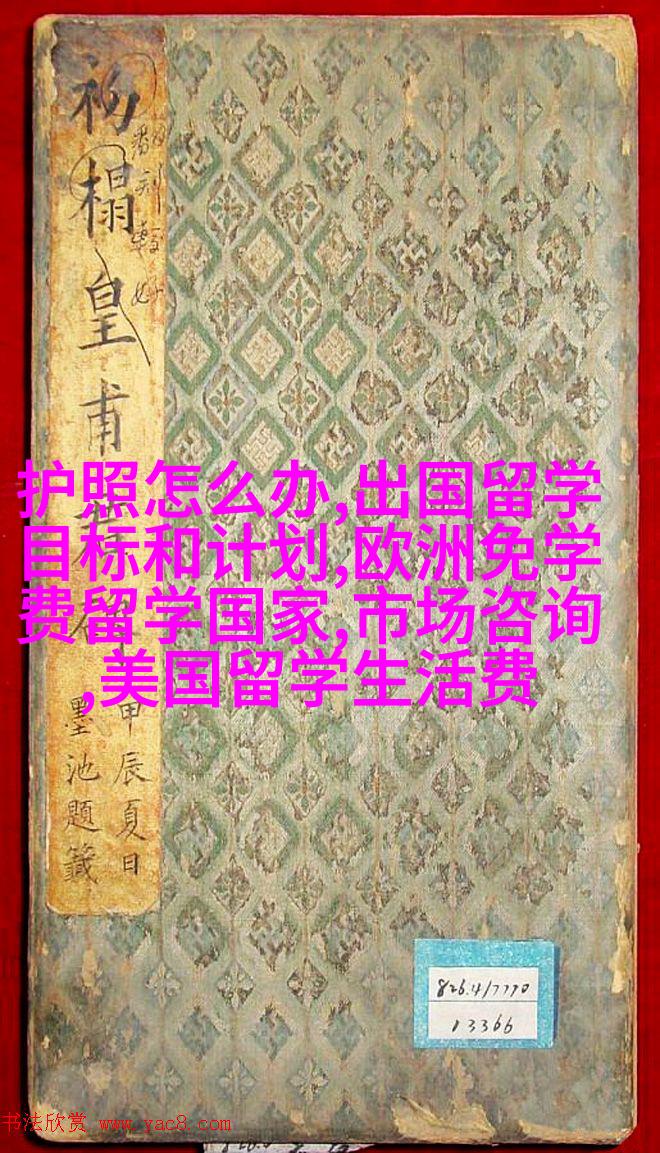 初榻皇甫君碑
甲辰夏日
墨池題籤
护照怎么办,出国留学
目标和计划,欧洲免学
费留学国家,市场咨询
,美国留学生活费
826.4/7770
13366
书法欣赏 www.yac8.com